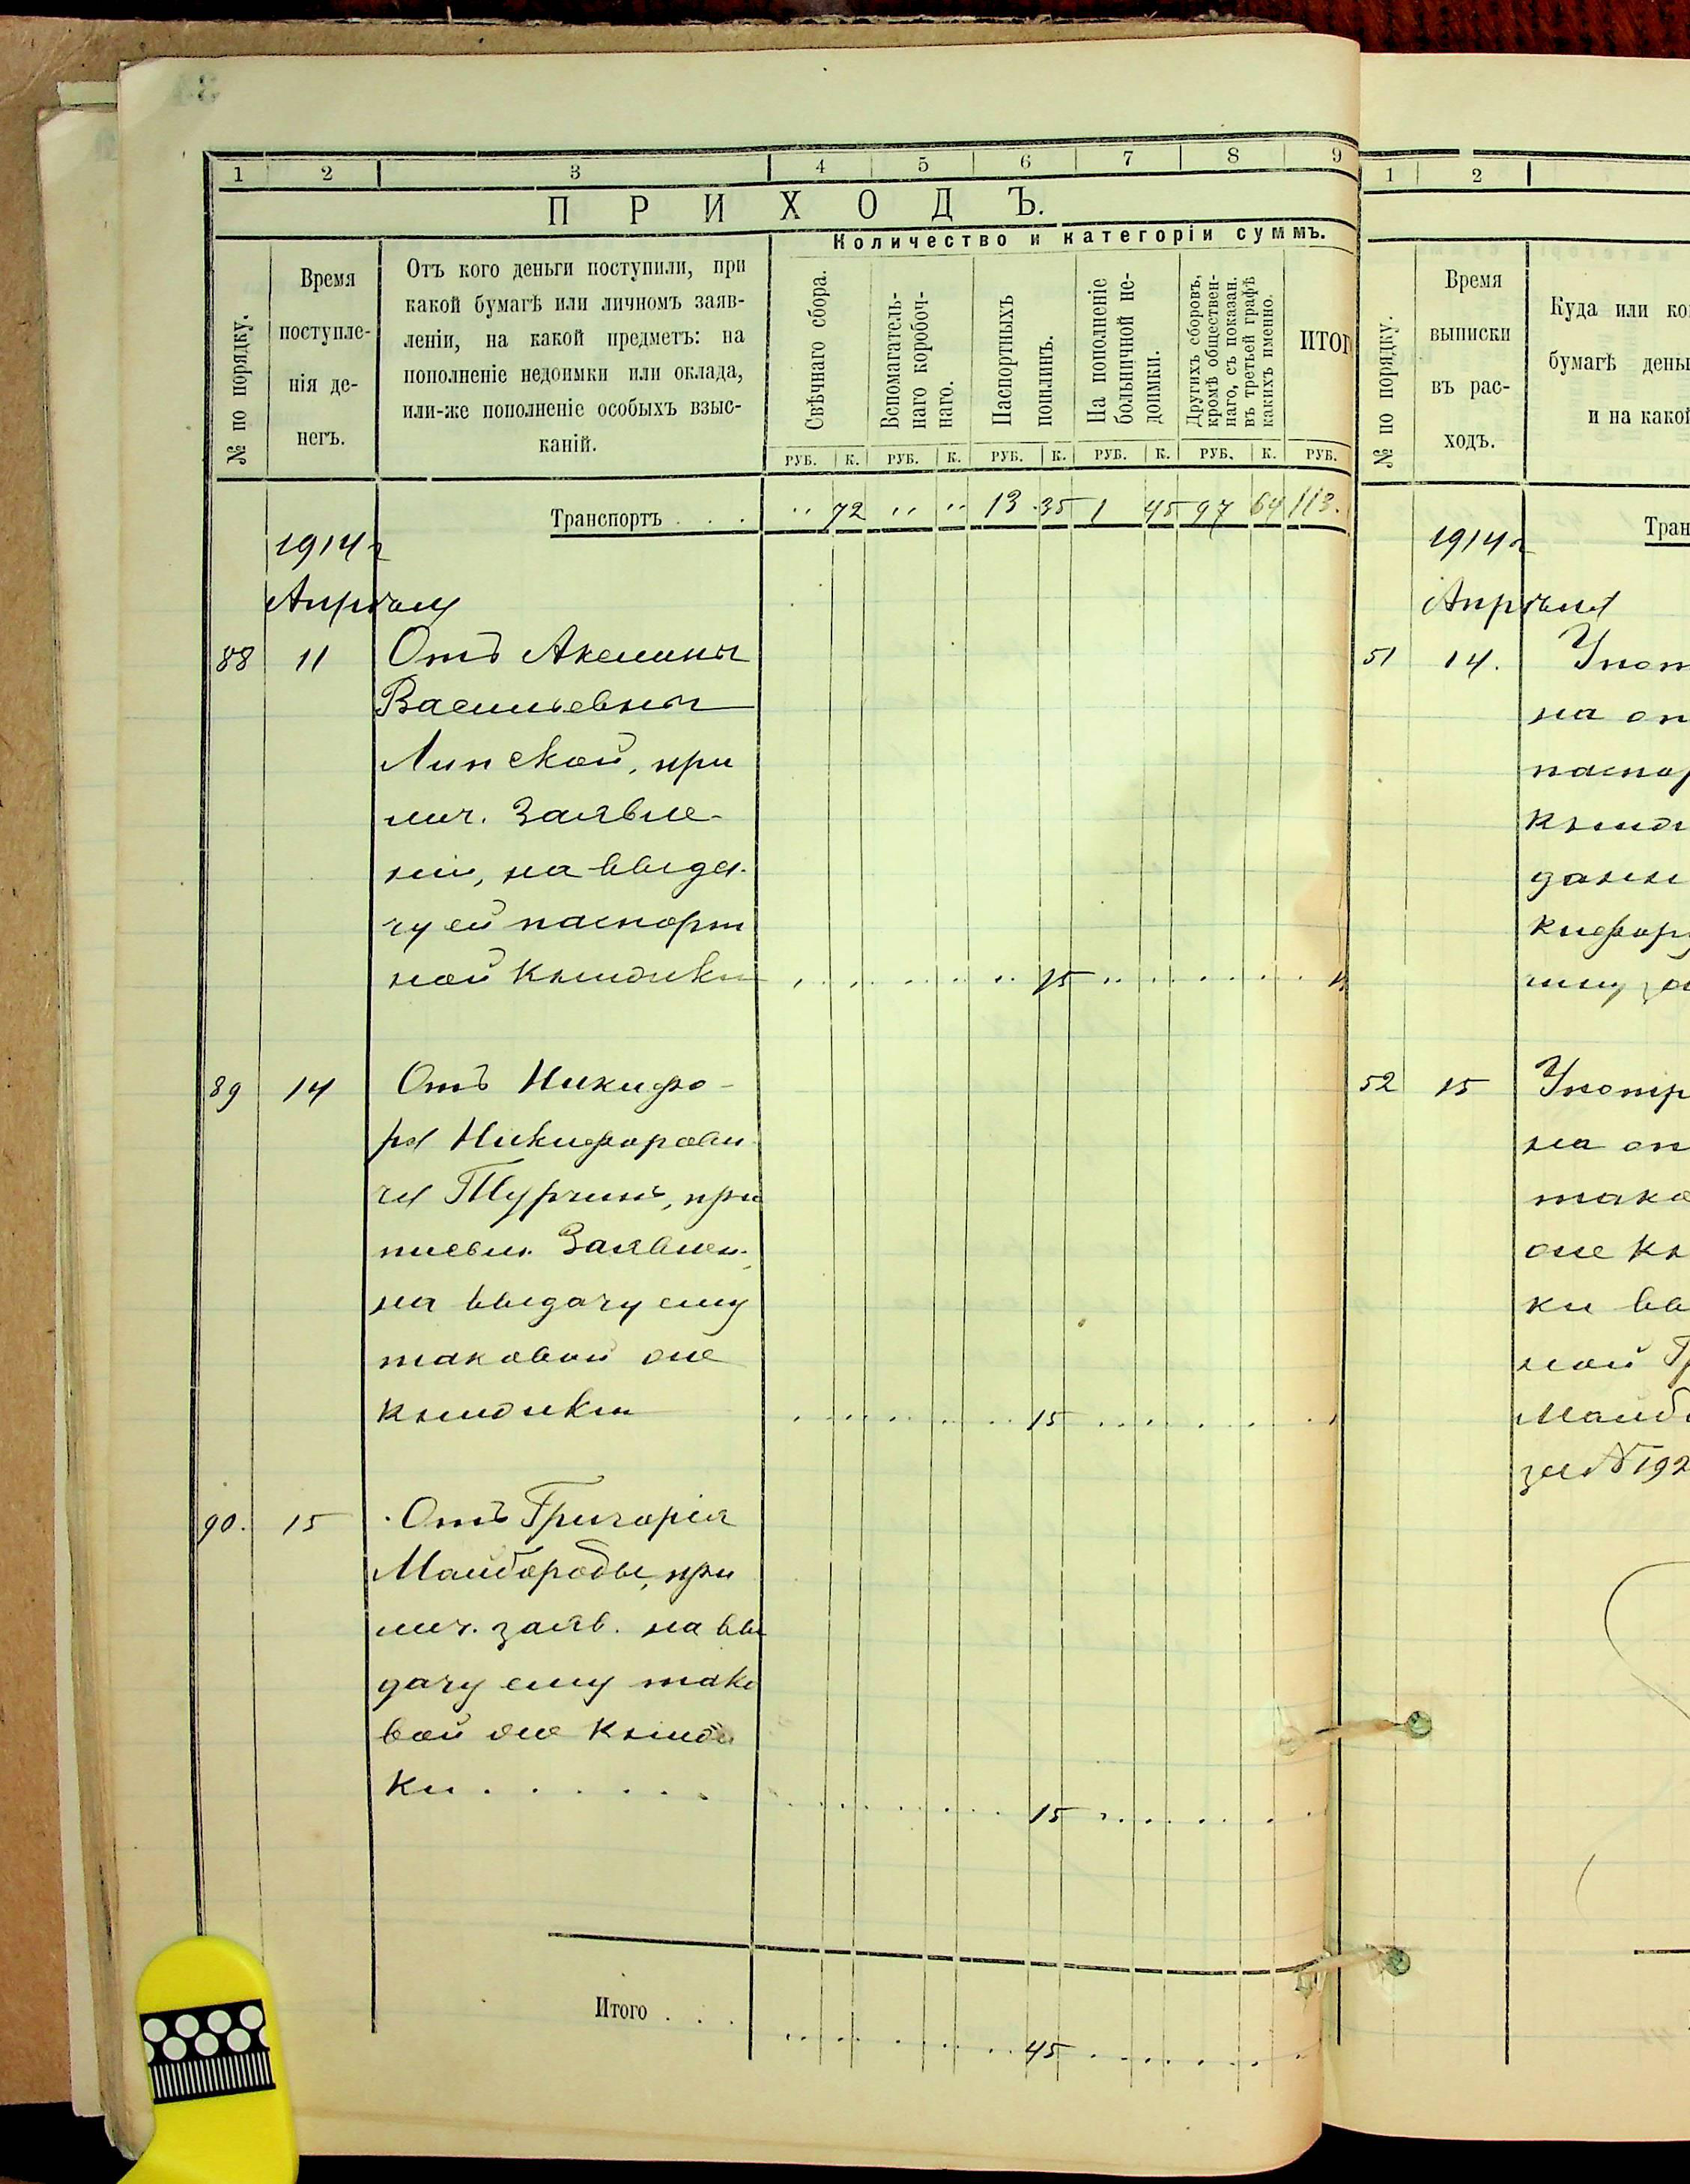 1 2 3 4 5 6 7 8 9
ПРИХОДЪ.
№ по порядку.
Время
поступле-
нія де-
негъ.
Отъ кого деньги поступили, при
какой бумагѣ или личномъ заяв-
леніи, на какой предметъ: на
пополненіе недоимки или оклада,
или-же пополненіе особыхъ взыс-
каній.
Количество и категоріи суммъ.
Свѣчнаго сбора.
Вспомагатель-
наго коробоч-
наго.
Паспортныхъ
пошлинъ.
На пополненіе
больничной не-
доимки.
Другихъ сборовъ,
кромѣ обществен-
наго, съ показан.
въ третьей графѣ
какихъ именно.
ИТОГ
РУБ. К. РУБ. К. РУБ. К. РУБ. К. РУБ. К. РУБ.
Транспортъ . . . " 72 " " 13 35 1 45 97 64 113.
1914 г
Апрѣля
88 11 Отъ Акелины
Васильевны
Липской, при
лич. Заявле-
ніи, на выда-
чу ей паспорт
ной книжки 15
89 14 Отъ Никифо-
ра Никифорови-
ча Турчинъ, при
письм. Заявлен.,
на выдачу ему
таковой же
книжки 15
90. 15 Отъ Григорія
Майбороды, при
лич. заяв. на вы
дачу ему тако
вой же книж
ки . . . . . . 15
Итого . . . 45
1 2
№ по порядку.
Время
выписки
въ рас-
ходъ.
Куда или ко
бумагѣ день
и на какой
Тран
1914 г
Апрѣля
51 14. Упот
на оп
паспор
книж
данн
кифор
чину за
52 15 Употр
на оп
тако
же кн
ки вы
ной Гр
Майбо
за № 192